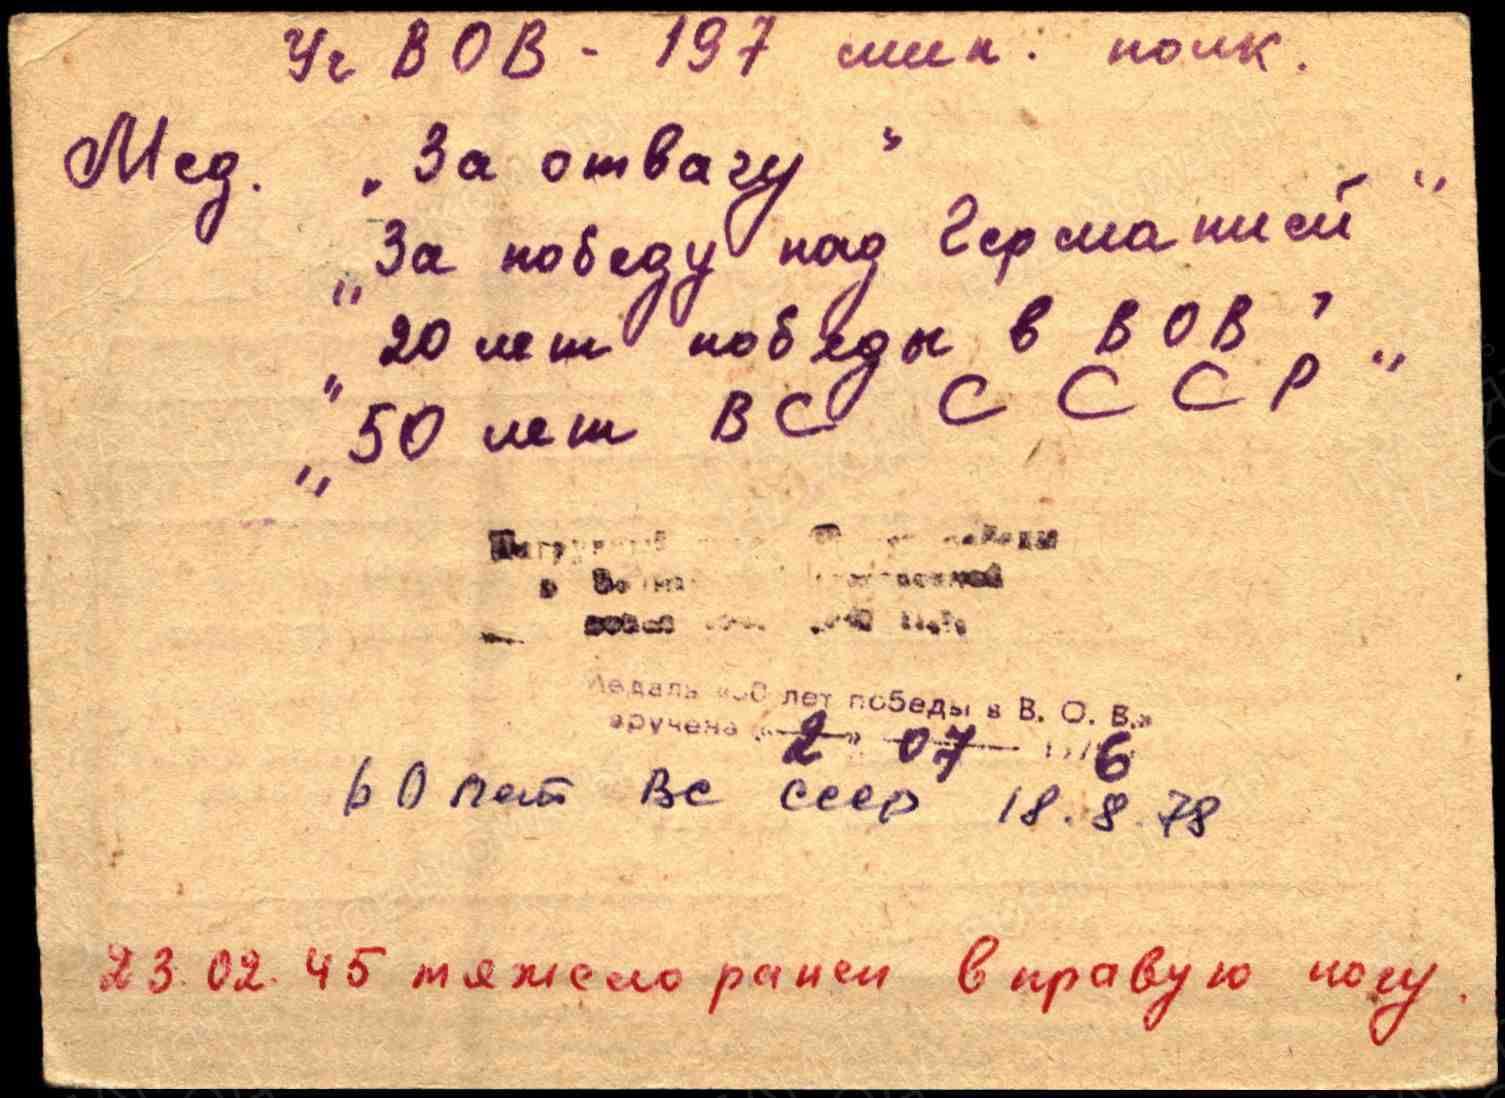 Уч ВОВ - 197 мин. полк.
Мед. „За отвагу"
„За победу над Германией"
„20 лет победы в ВОВ"
„50 лет ВС СССР"
Медаль «30 лет победы в В. О. В.»
вручена «2» 07 1976
60 лет ВС СССР 18.8.78
23.02.45 тяжело ранен в правую ногу.